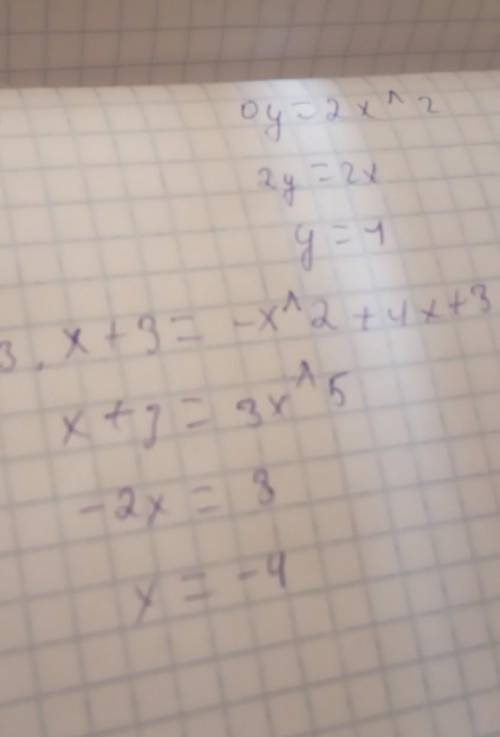 0y = 2x^2
2y = 2x
y = 1
3. x + 3 = -x^2 + 4x + 3
x + 3 = 3x^5
-2x = 3
x = -4